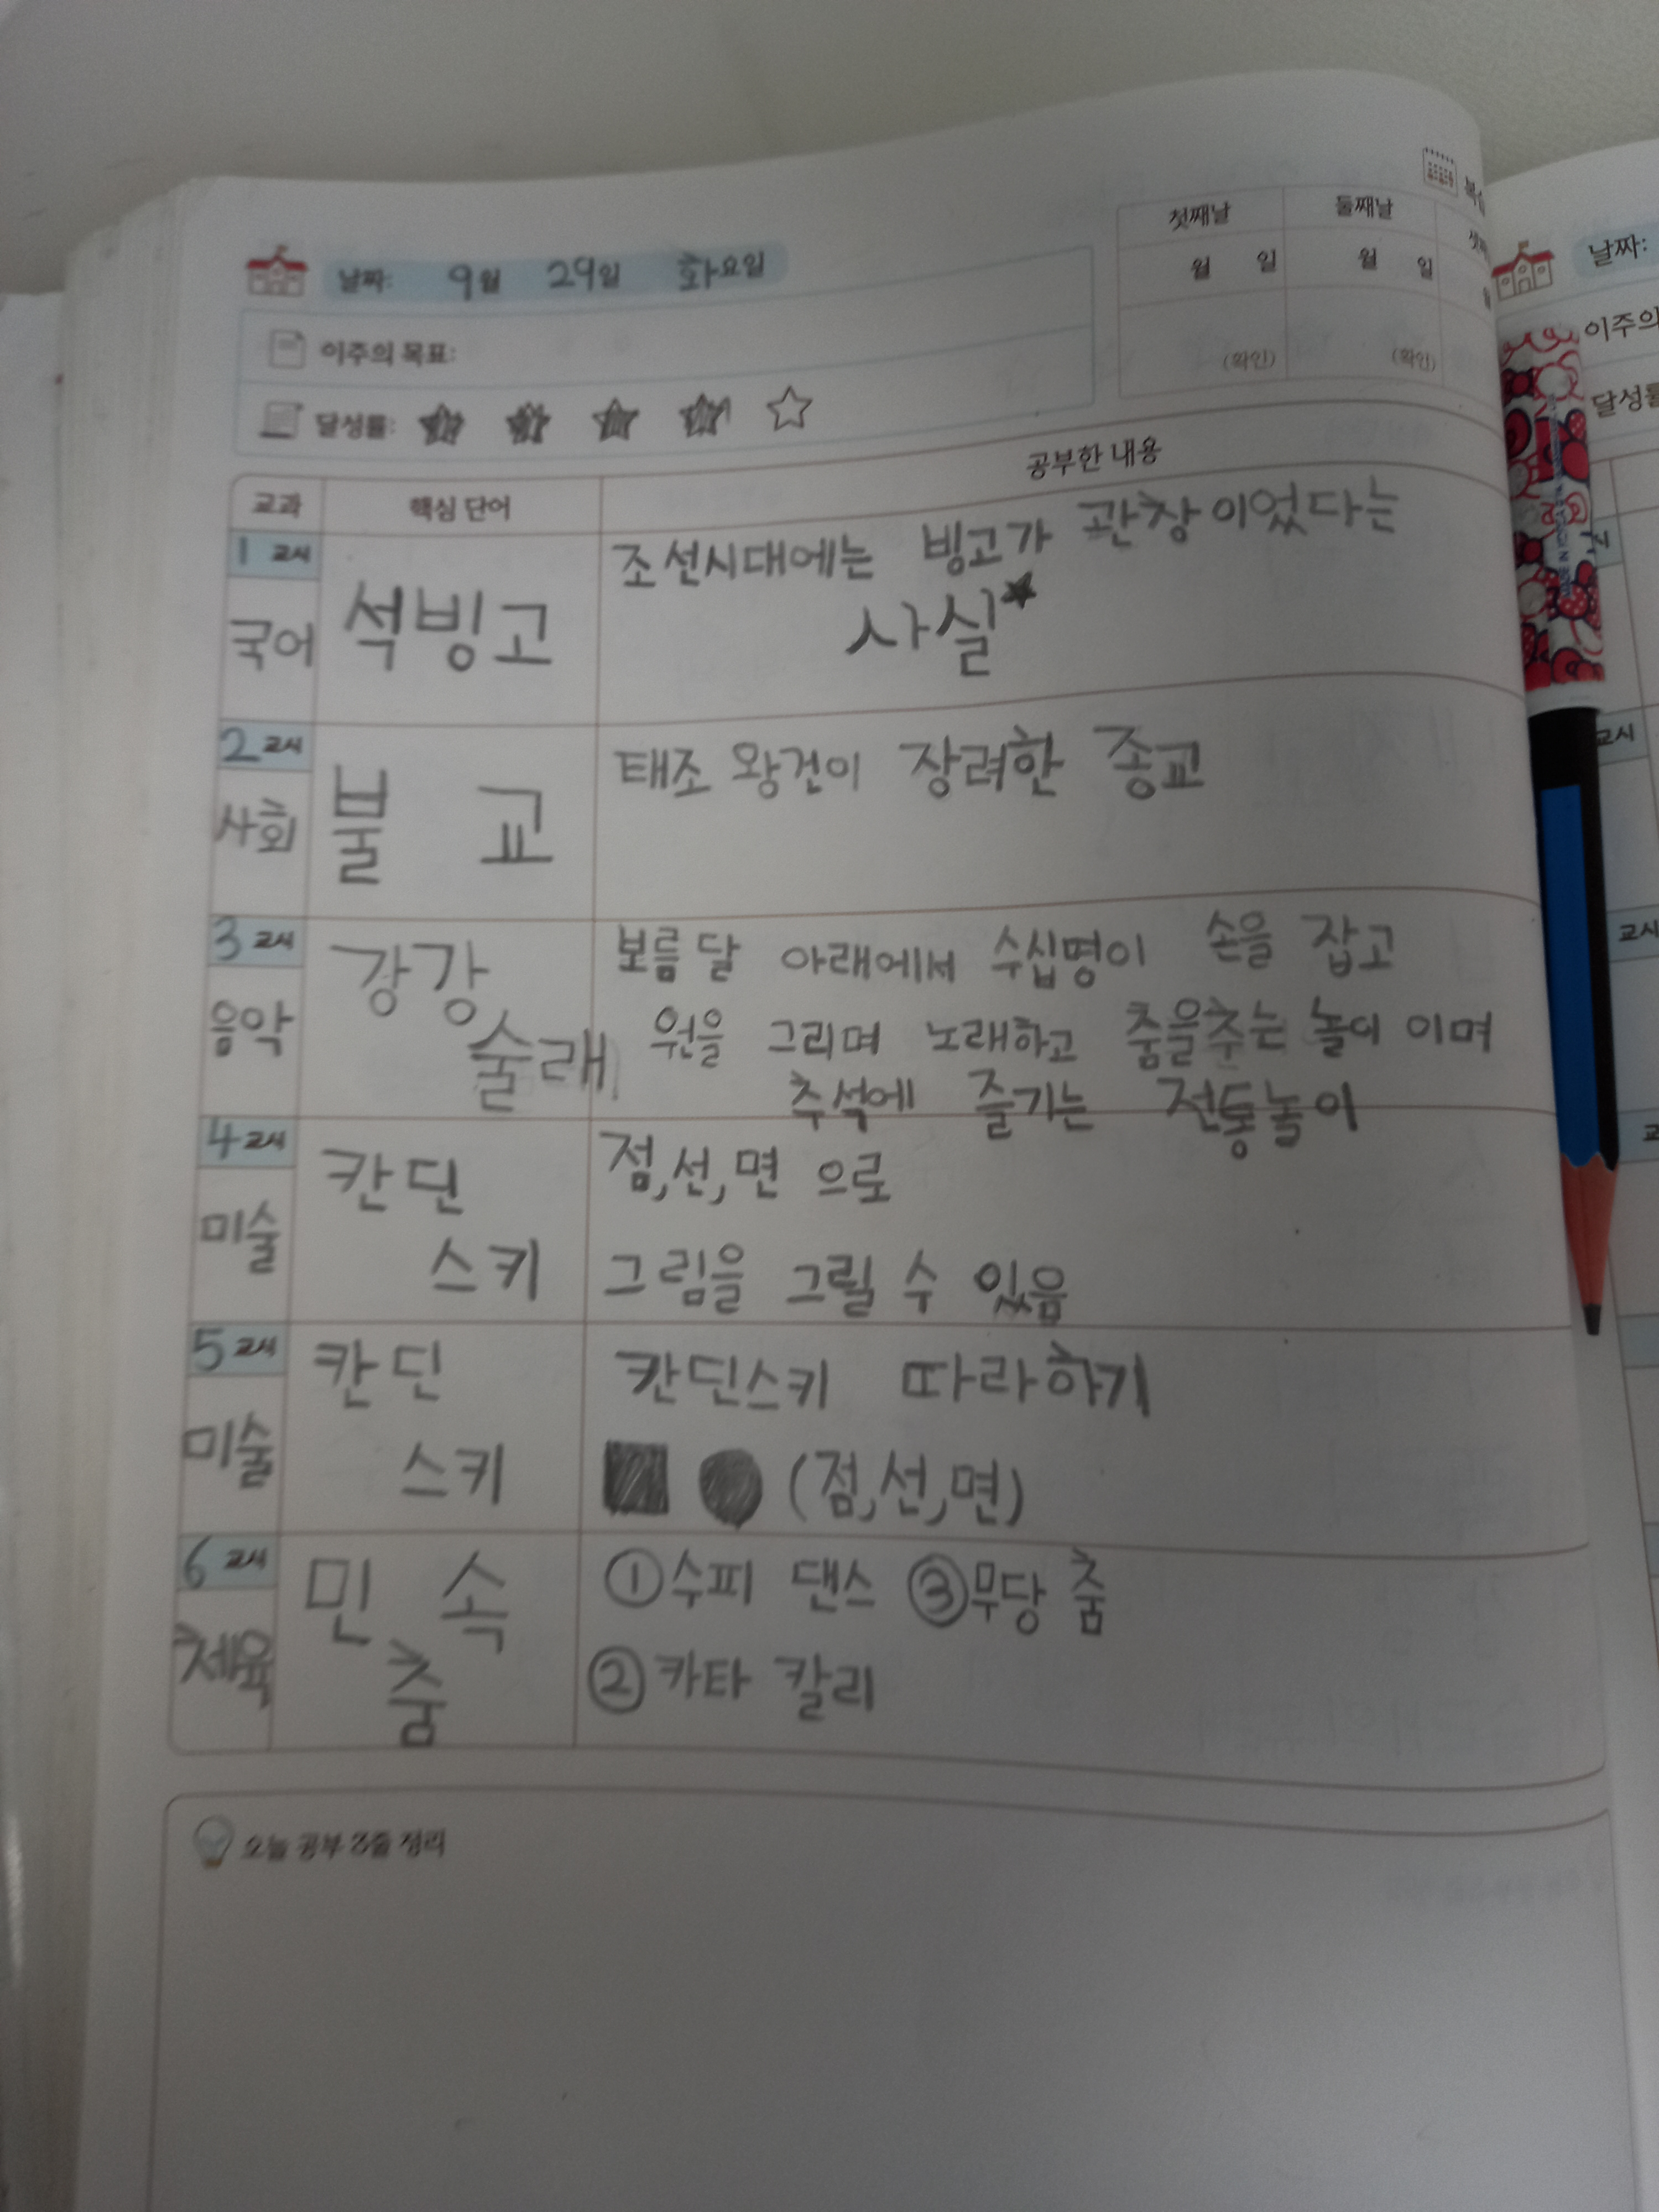 첫째날 둘째날
월 일 월 일
(확인) (확인)
날짜: 9월 29일 화요일
이주의 목표:
달성률:
교과 핵심 단어 공부한 내용
1 교시
국어
석빙고
조선시대에는 빙고가 관장이었다는
사실★
2 교시
사회
불 교
태조 왕건이 장려한 종교
3 교시
음악
강강
술래
보름달 아래에서 수십명이 손을 잡고
원을 그리며 노래하고 춤을추는 놀이 이며
추석에 즐기는 전통놀이
4 교시
미술
칸딘
스키
점,선,면 으로
그림을 그릴 수 있음
5 교시
미술
칸딘
스키
칸딘스키 따라하기
(점,선,면)
6 교시
체육
민 속
춤
①수피 댄스 ③무당 춤
②카타 칼리
오늘 공부 3줄 정리
날짜:
이주의
교시
교시